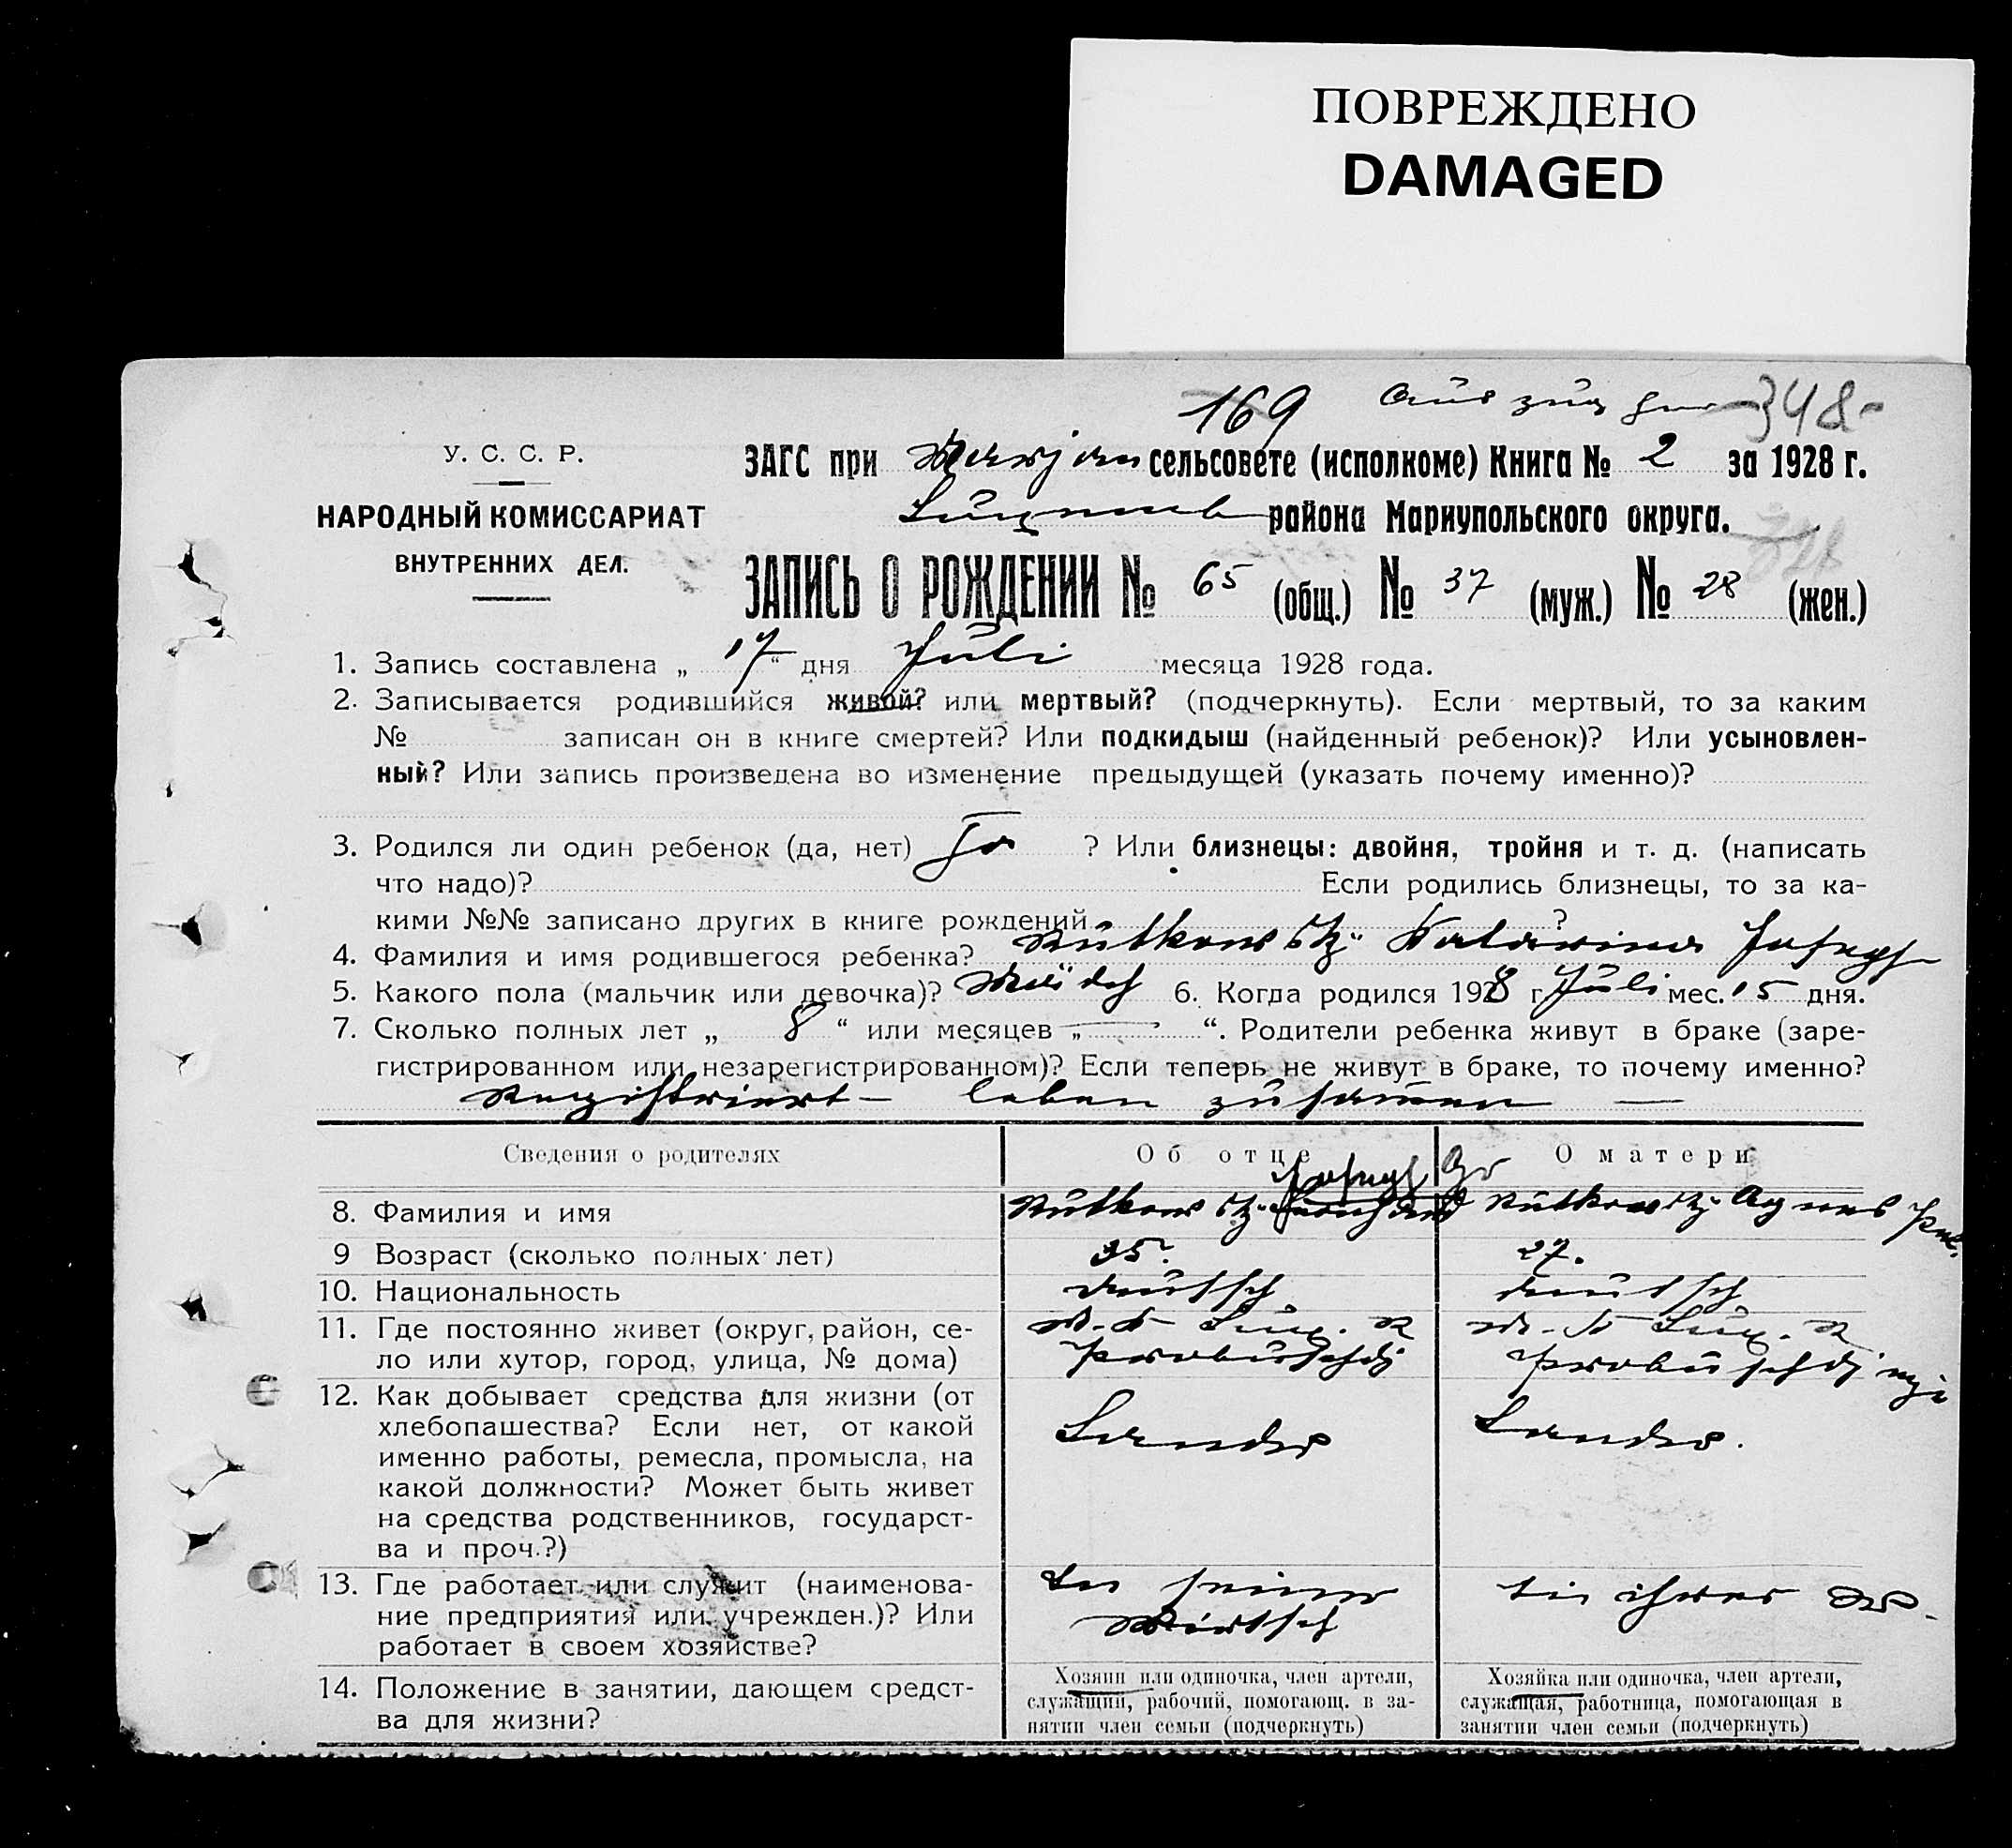 ПОВРЕЖДЕНО
DAMAGED
169 Auszug 348
У. С. С. Р.
НАРОДНЫЙ КОМИССАРИАТ
ВНУТРЕННИХ ДЕЛ.
ЗАГС при Marjan сельсовете (исполкоме) Книга № 2 за 1928 г.
района Мариупольского округа.
ЗАПИСЬ О РОЖДЕНИИ № 65 (общ.) № 37 (муж.) № 28 (жен.)
1. Запись составлена „ 17 “ дня Juli месяца 1928 года.
2. Записывается родившийся живой? или мертвый? (подчеркнуть). Если мертвый, то за каким
№ записан он в книге смертей? Или подкидыш (найденный ребенок)? Или усыновлен-
ный? Или запись произведена во изменение предыдущей (указать почему именно)?
3. Родился ли один ребенок (да, нет) Ja ? Или близнецы: двойня, тройня и т. д. (написать
что надо)? Если родились близнецы, то за ка-
кими №№ записано других в книге рождений ?
4. Фамилия и имя родившегося ребенка? Rutkowsky Katarina Josef
5. Какого пола (мальчик или девочка)? Mädch 6. Когда родился 1928 г. Juli мес. 15 дня.
7. Сколько полных лет „ 8 “ или месяцев „ — “. Родители ребенка живут в браке (заре-
гистрированном или незарегистрированном)? Если теперь не живут в браке, то почему именно?
Registriert – leben zusammen —
Сведения о родителях
Об отце
О матери
8. Фамилия и имя
Rutkowsky Josef
Rutkowsky Agnes
9 Возраст (сколько полных лет)
35.
27.
10. Национальность
deutsch
deutsch
11. Где постоянно живет (округ, район, се-
ло или хутор, город, улица, № дома)
12. Как добывает средства для жизни (от
хлебопашества? Если нет, от какой
именно работы, ремесла, промысла, на
какой должности? Может быть живет
на средства родственников, государст-
ва и проч.?)
Landw
Landw.
13. Где работает или служит (наименова-
ние предприятия или учрежден.)? Или
работает в своем хозяйстве?
In seiner
Wirtsch
In ihrer W.
14. Положение в занятии, дающем средст-
ва для жизни?
Хозяин или одиночка, член артели,
служащий, рабочий, помогающ. в за-
нятии член семьи (подчеркнуть)
Хозяйка или одиночка, член артели,
служащая, работница, помогающая в
занятии член семьи (подчеркнуть)